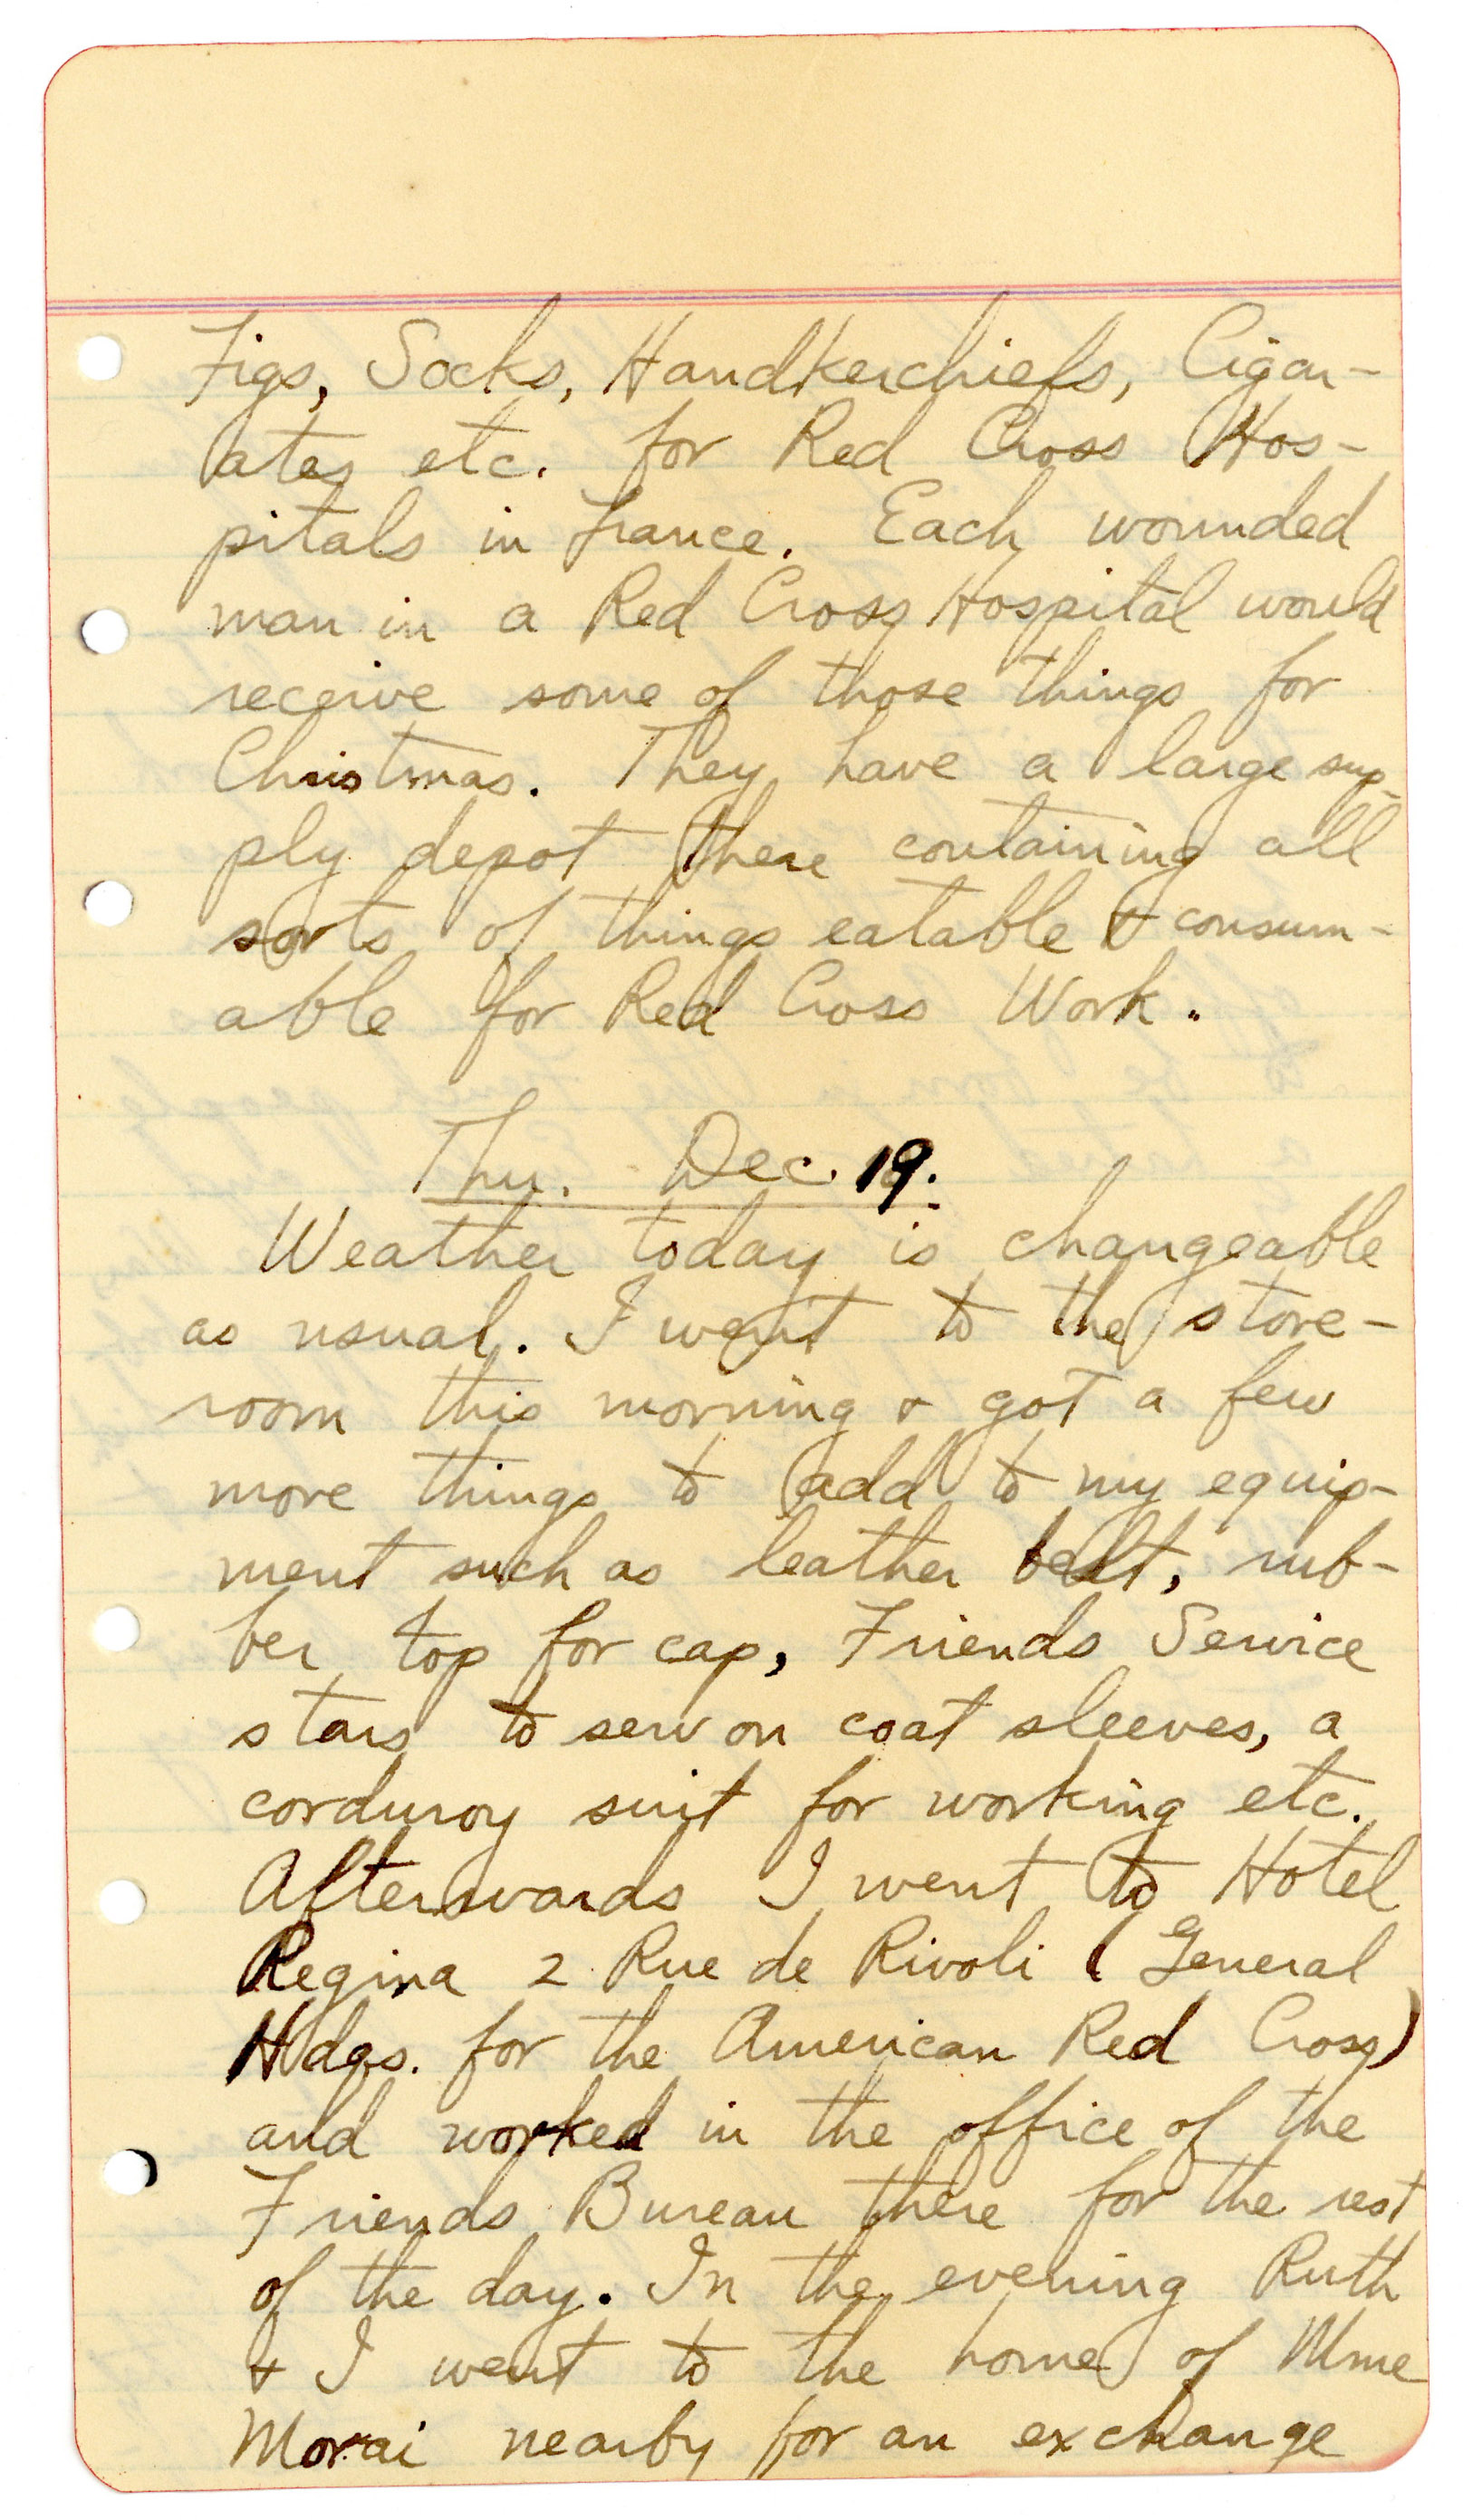 Figs, Socks, Handkerchiefs, Cigar-
ates etc. for Red Cross Hos-
pitals in France. Each wounded
man in a Red Cross Hospital would
receive some of those things for
Christmas. They have a large sup-
ply depot there containing all
sorts of things eatable & consum-
able for Red Cross Work.
Thu. Dec. 19.
Weather today is changeable
as usual. I went to the store-
room this morning & got a few
more things to add to my equip-
ment such as leather belt, rub-
ber top for cap, Friends Service
stars to sew on coat sleeves, a
corduroy suit for working etc.
Afterwards I went to Hotel
Regina 2 Rue de Rivoli (General
Hdqs. for the American Red Cross)
and worked in the office of the
Friends Bureau there for the rest
of the day. In the evening Ruth
& I went to the home of Mme
Morai nearby for an exchange